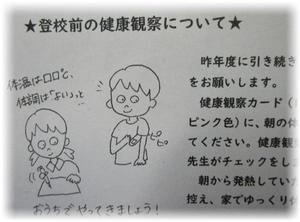 ★登校前の健康観察について★
体温は口口℃、
体調は「よい」っと
おうちでやってきましょう！
昨年度に引き続き
をお願いします。
健康観察カード（
ピンク色）に、朝の体
てください。健康観
先生がチェックをし
朝から発熱してい
控え、家でゆっくり